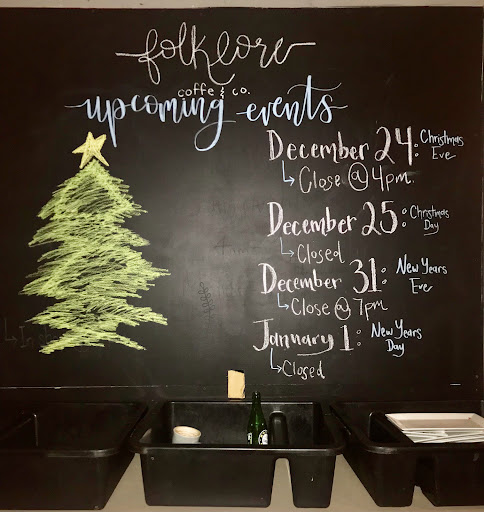 folklore
coffe & co.
upcoming events
December 24: Christmas Eve
↳ Close @ 4pm.
December 25: Christmas Day
↳ Closed
December 31: New Years Eve
↳ Close @ 7pm
January 1: New Years Day
↳ Closed